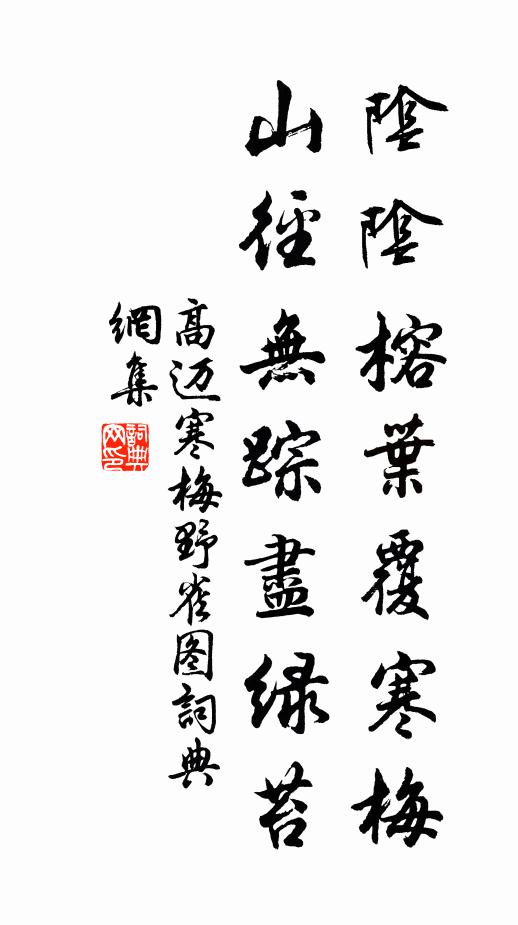 陰陰榕葉覆寒梅
山徑無蹤盡緑苔
高迈寒梅野雀图詞典
網集
詞典
网印